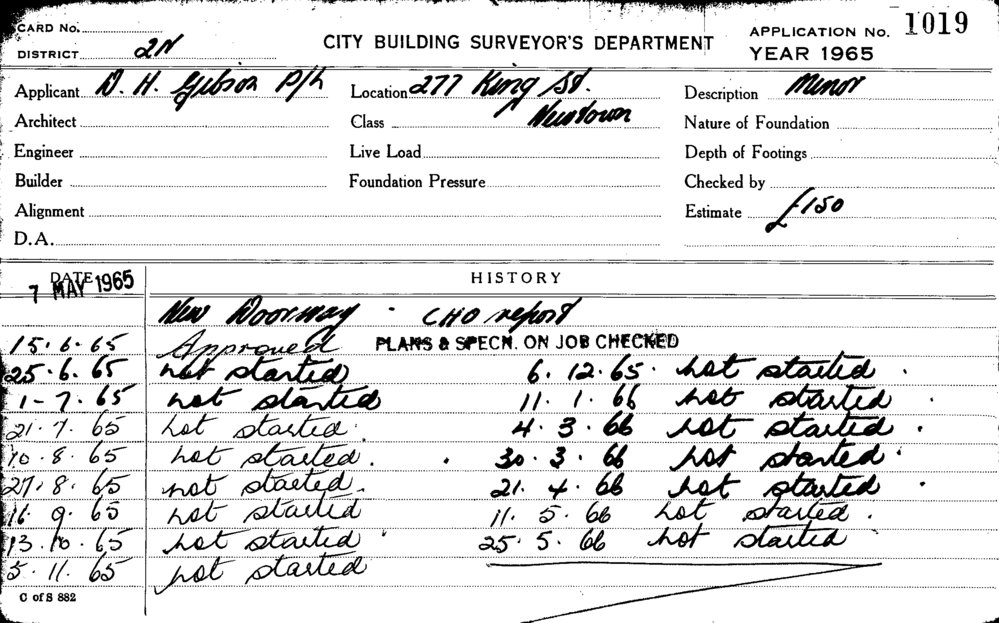 CARD No.
DISTRICT 2N
CITY BUILDING SURVEYOR'S DEPARTMENT
APPLICATION No. 1019
YEAR 1965
Applicant D. H. Gibson P/L
Location 277 King St.
Newtown
Description Minor
Architect
Class
Nature of Foundation
Engineer
Live Load
Depth of Footings
Builder
Foundation Pressure
Checked by
Alignment
Estimate £150
D.A.
DATE
HISTORY
7 MAY 1965
New Doorway - CHO report
15.6.65 Approved PLANS & SPECN. ON JOB CHECKED
25.6.65 not started 6.12.65. not started.
1-7.65 not started 11.1.66 not started.
21.7.65 not started. 4.3.66 not started.
10.8.65 not started. 30.3.66 not started.
27.8.65 not started. 21.4.66 not started.
16.9.65 not started 11.5.66 not started.
13.10.65 not started 25.5.66 not started
5.11.65 not started
C of S 882